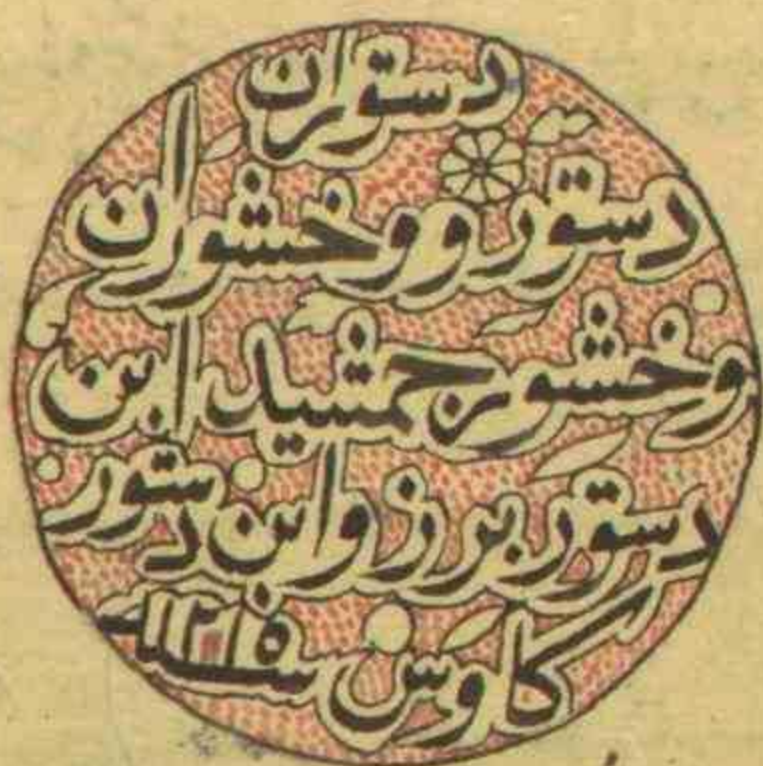 دستوران
دستور ووخشوران
وخشور جمشید ابن
دستور برزو ابن دستور
کاوس سنه